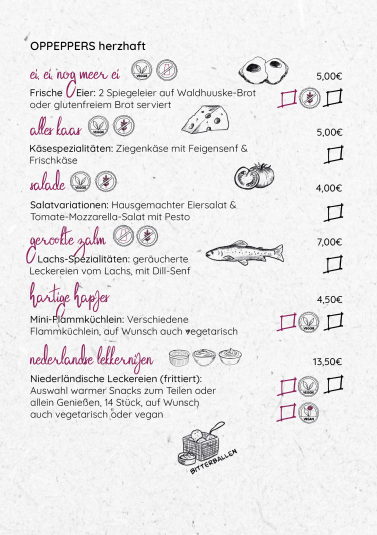 OPPEPPERS herzhaft
ei, ei, nog meer ei
5,00€
Frische Eier: 2 Spiegeleier auf Waldhuuske-Brot
oder glutenfreiem Brot serviert
alles kaas
5,00€
Käsespezialitäten: Ziegenkäse mit Feigensenf &
Frischkäse
salade
4,00€
Salatvariationen: Hausgemachter Eiersalat &
Tomate-Mozzarella-Salat mit Pesto
gerookte zalm
7,00€
Lachs-Spezialitäten: geräucherte
Leckereien vom Lachs, mit Dill-Senf
hartige hapjes
4,50€
Mini-Flammküchlein: Verschiedene
Flammküchlein, auf Wunsch auch vegetarisch
nederlandse lekkernijen
13,50€
Niederländische Leckereien (frittiert):
Auswahl warmer Snacks zum Teilen oder
allein Genießen, 14 Stück, auf Wunsch
auch vegetarisch oder vegan
VEGAN
BITTERBALLEN